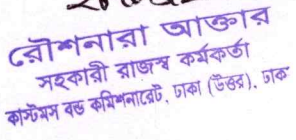 রৌশনারা আক্তার
সহকারী রাজস্ব কর্মকর্তা
কাস্টমস বন্ড কমিশনারেট, ঢাকা (উত্তর), ঢাকা